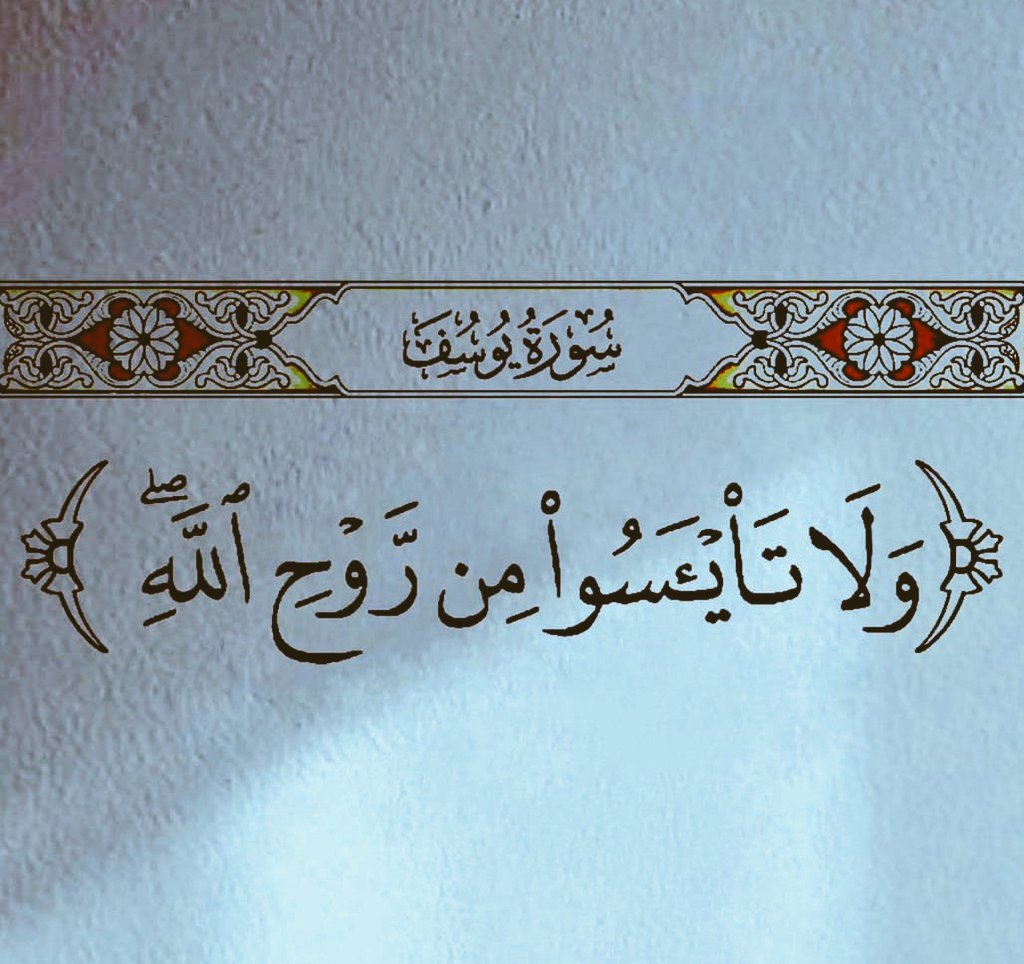 سُورَةُ يُوسُفَ
﴿وَلَا تَا۟يْـَٔسُوا۟ مِن رَّوْحِ ٱللَّهِ ۖ﴾